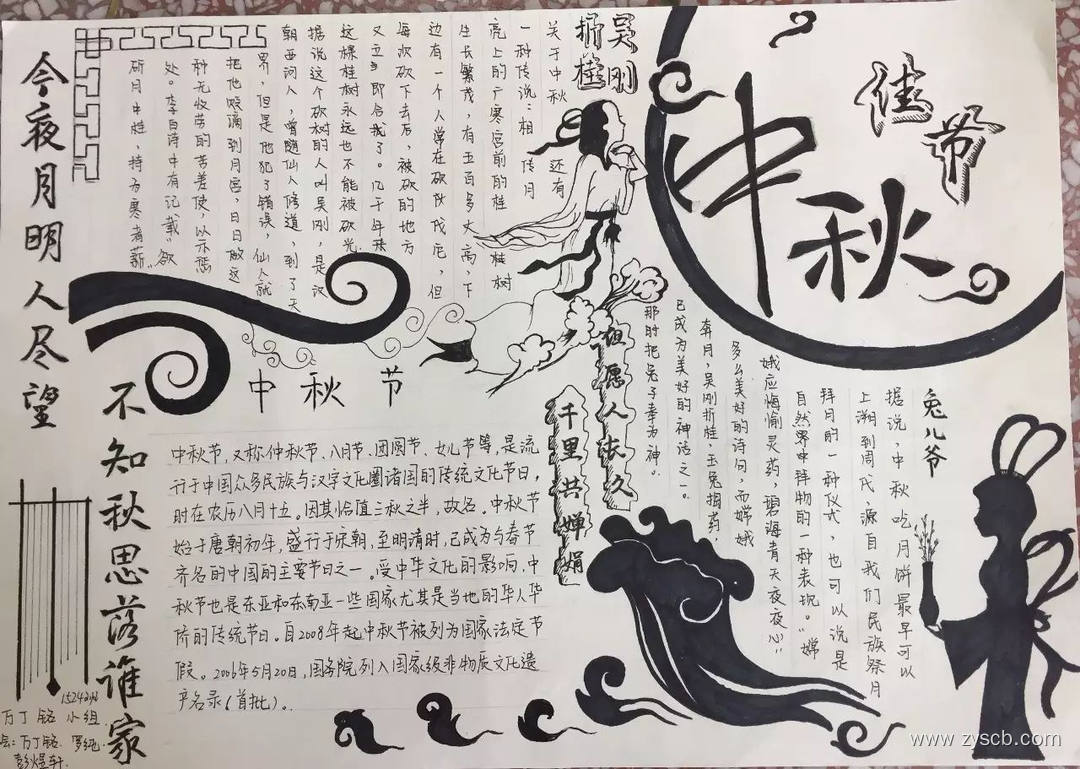 佳节
中秋
吴刚
折桂
关于中秋还有
一种传说:相传月
亮上的广寒宫前的桂桂树
生长繁茂,有五百多丈高,下
边有一个人常在砍伐它,但
每次砍下去后,被砍的地方
又立即合我了。几千年来
这棵桂树永远也不能被砍光
据说这个砍树的人叫吴刚,是汉
朝西河人,曾随仙人修道,到了天
界,但是他犯了错误,仙人就
把他贬谪到月宫,日日做这
种无收劳的苦差使,以示惩
处。李白诗中有记载"欲
斫月中桂,持为寒者薪"
今夜月明人尽望
不知秋思落谁家
中秋节
中秋节,又称仲秋节、八月节、团圆节、女儿节等,是流
行于中国众多民族与汉字文化圈诸国的传统文化节日,
时在农历八月十五。因其恰值三秋之半,故名。中秋节
始于唐朝初年,盛行于宋朝,至明清时,已成为与春节
齐名的中国的主要节日之一。受中华文化的影响,中
秋节也是东亚和东南亚一些国家尤其是当地的华人华
侨的传统节日。自2008年起中秋节被列为国家法定节
假。2006年5月20日,国务院列入国家级非物质文化遗
产名录(首批)。
但愿人长久
千里共婵娟
兔儿爷
据说,中秋吃月饼最早可以
上溯到周代,源自我们民族祭月
拜月的一种仪式,也可以说是
自然界中拜物的一种表现。"嫦
娥应悔偷灵药,碧海青天夜夜心"
多么美好的诗句,而嫦娥
奔月,吴刚折桂,玉兔捣药,
已成为美好的神话之一。
那时把兔子奉为神。
万丁铭小组
www.zyscb.com